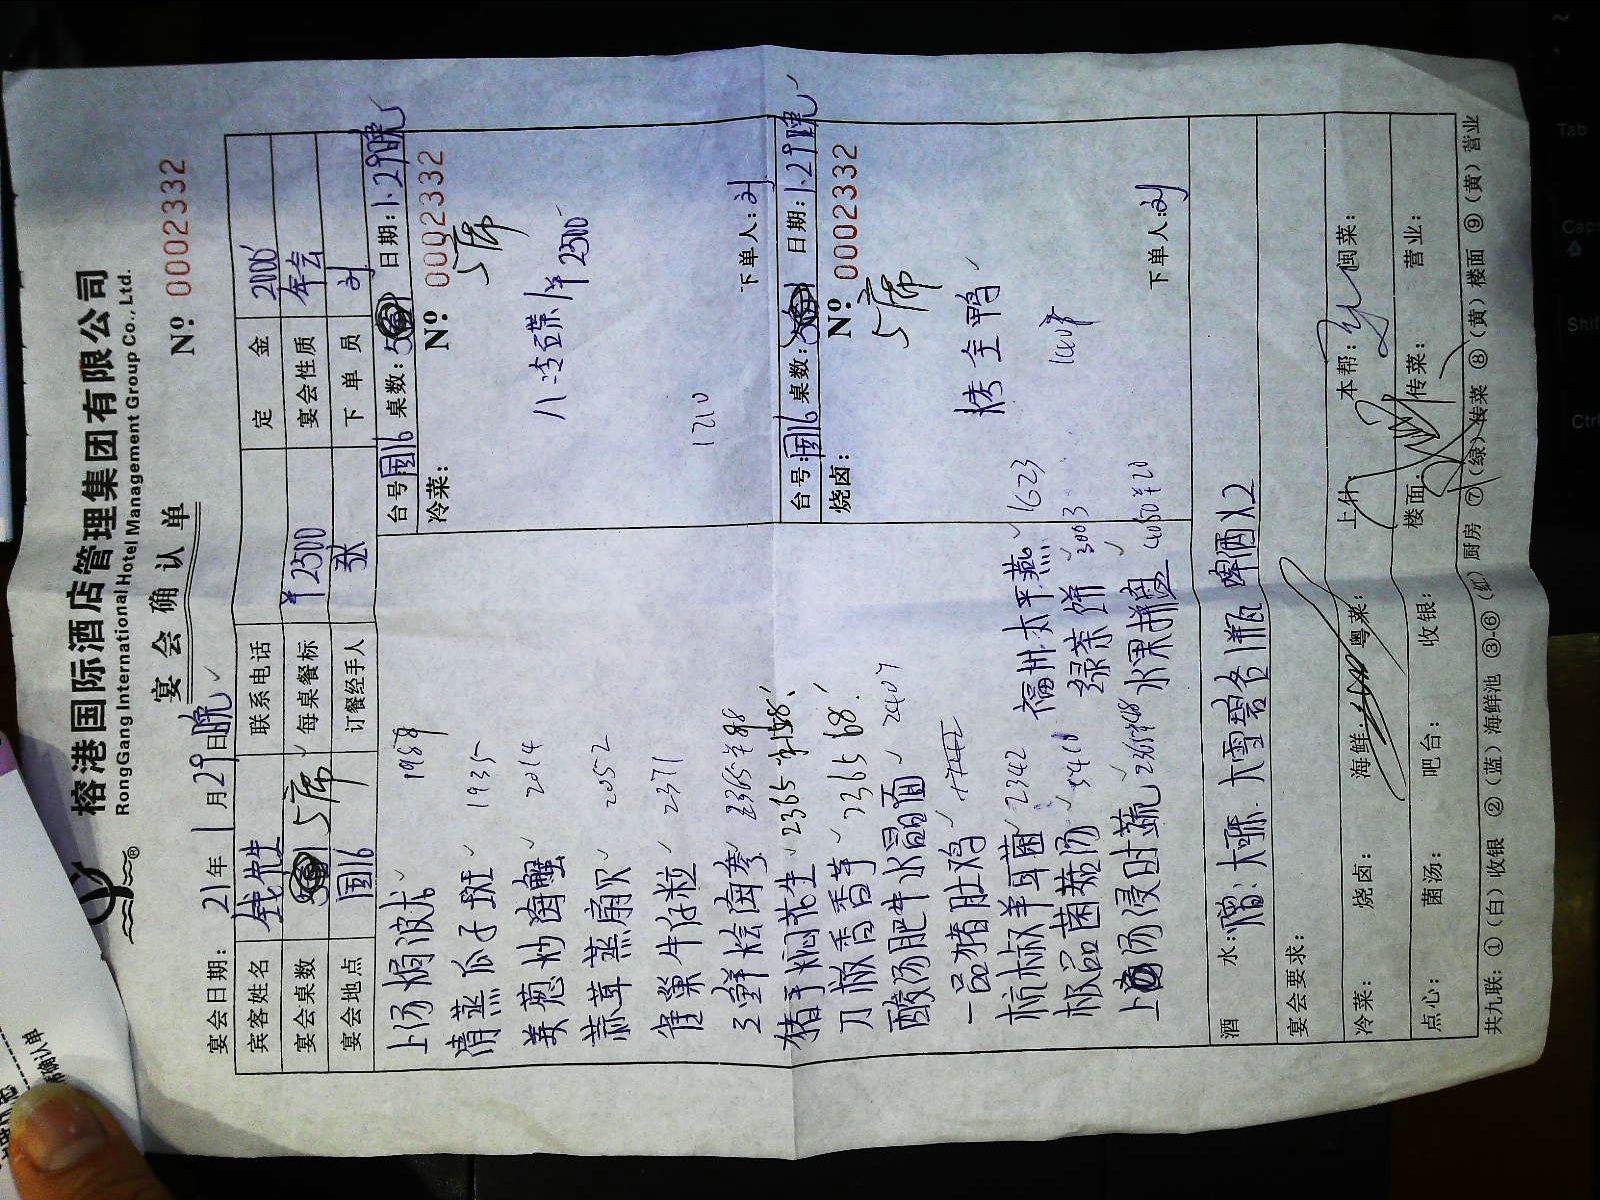 榕港国际酒店管理集团有限公司
RongGang International Hotel Management Group Co., Ltd.
宴会确认单
Nº 0002332
宴会日期: 21年 1月29日晚
宾客姓名 钱先生 联系电话 定金 2000
宴会桌数 5席 每桌餐标 ¥2500 宴会性质 年会
宴会地点 国16 订餐经手人 张 下单员 刘
上汤焗波龙 1988
清蒸瓜子斑 1935
姜葱炒海蟹 2014
蒜茸蒸扇贝 2052
雀巢牛仔粒 2371
三鲜烩海参 2365 ¥88
猪手焖花生 2365 ¥158
刀板香香芋 2365 68
酸汤肥牛水晶面 2407
一品猪肚鸡
杭椒羊耳菌 2342 福州太平燕 1623
极品菌菇汤 3410 绿茶饼 3003
上汤浸时蔬 2365 ¥48 水果拼盘 4080 ¥20
台号: 国16 桌数: 5 日期: 1.29晚
冷菜: Nº 0002332
5席
八冷碟 ¥2500
1210
下单人: 刘
台号: 国16 桌数: 5 日期: 1.29晚
烧卤: Nº 0002332
5席
烤全鸭
下单人: 刘
酒水: 赠: 大雪碧各1瓶 啤酒X2
宴会要求:
冷菜: 烧卤: 海鲜: 粤菜: 上什: 本帮: 闽菜:
点心: 菌汤: 吧台: 收银: 楼面: 传菜: 营业:
共九联: ①(白)收银 ②(蓝)海鲜池 ③-⑥(红)厨房 ⑦(绿)传菜 ⑧(黄)楼面 ⑨(黄)营业